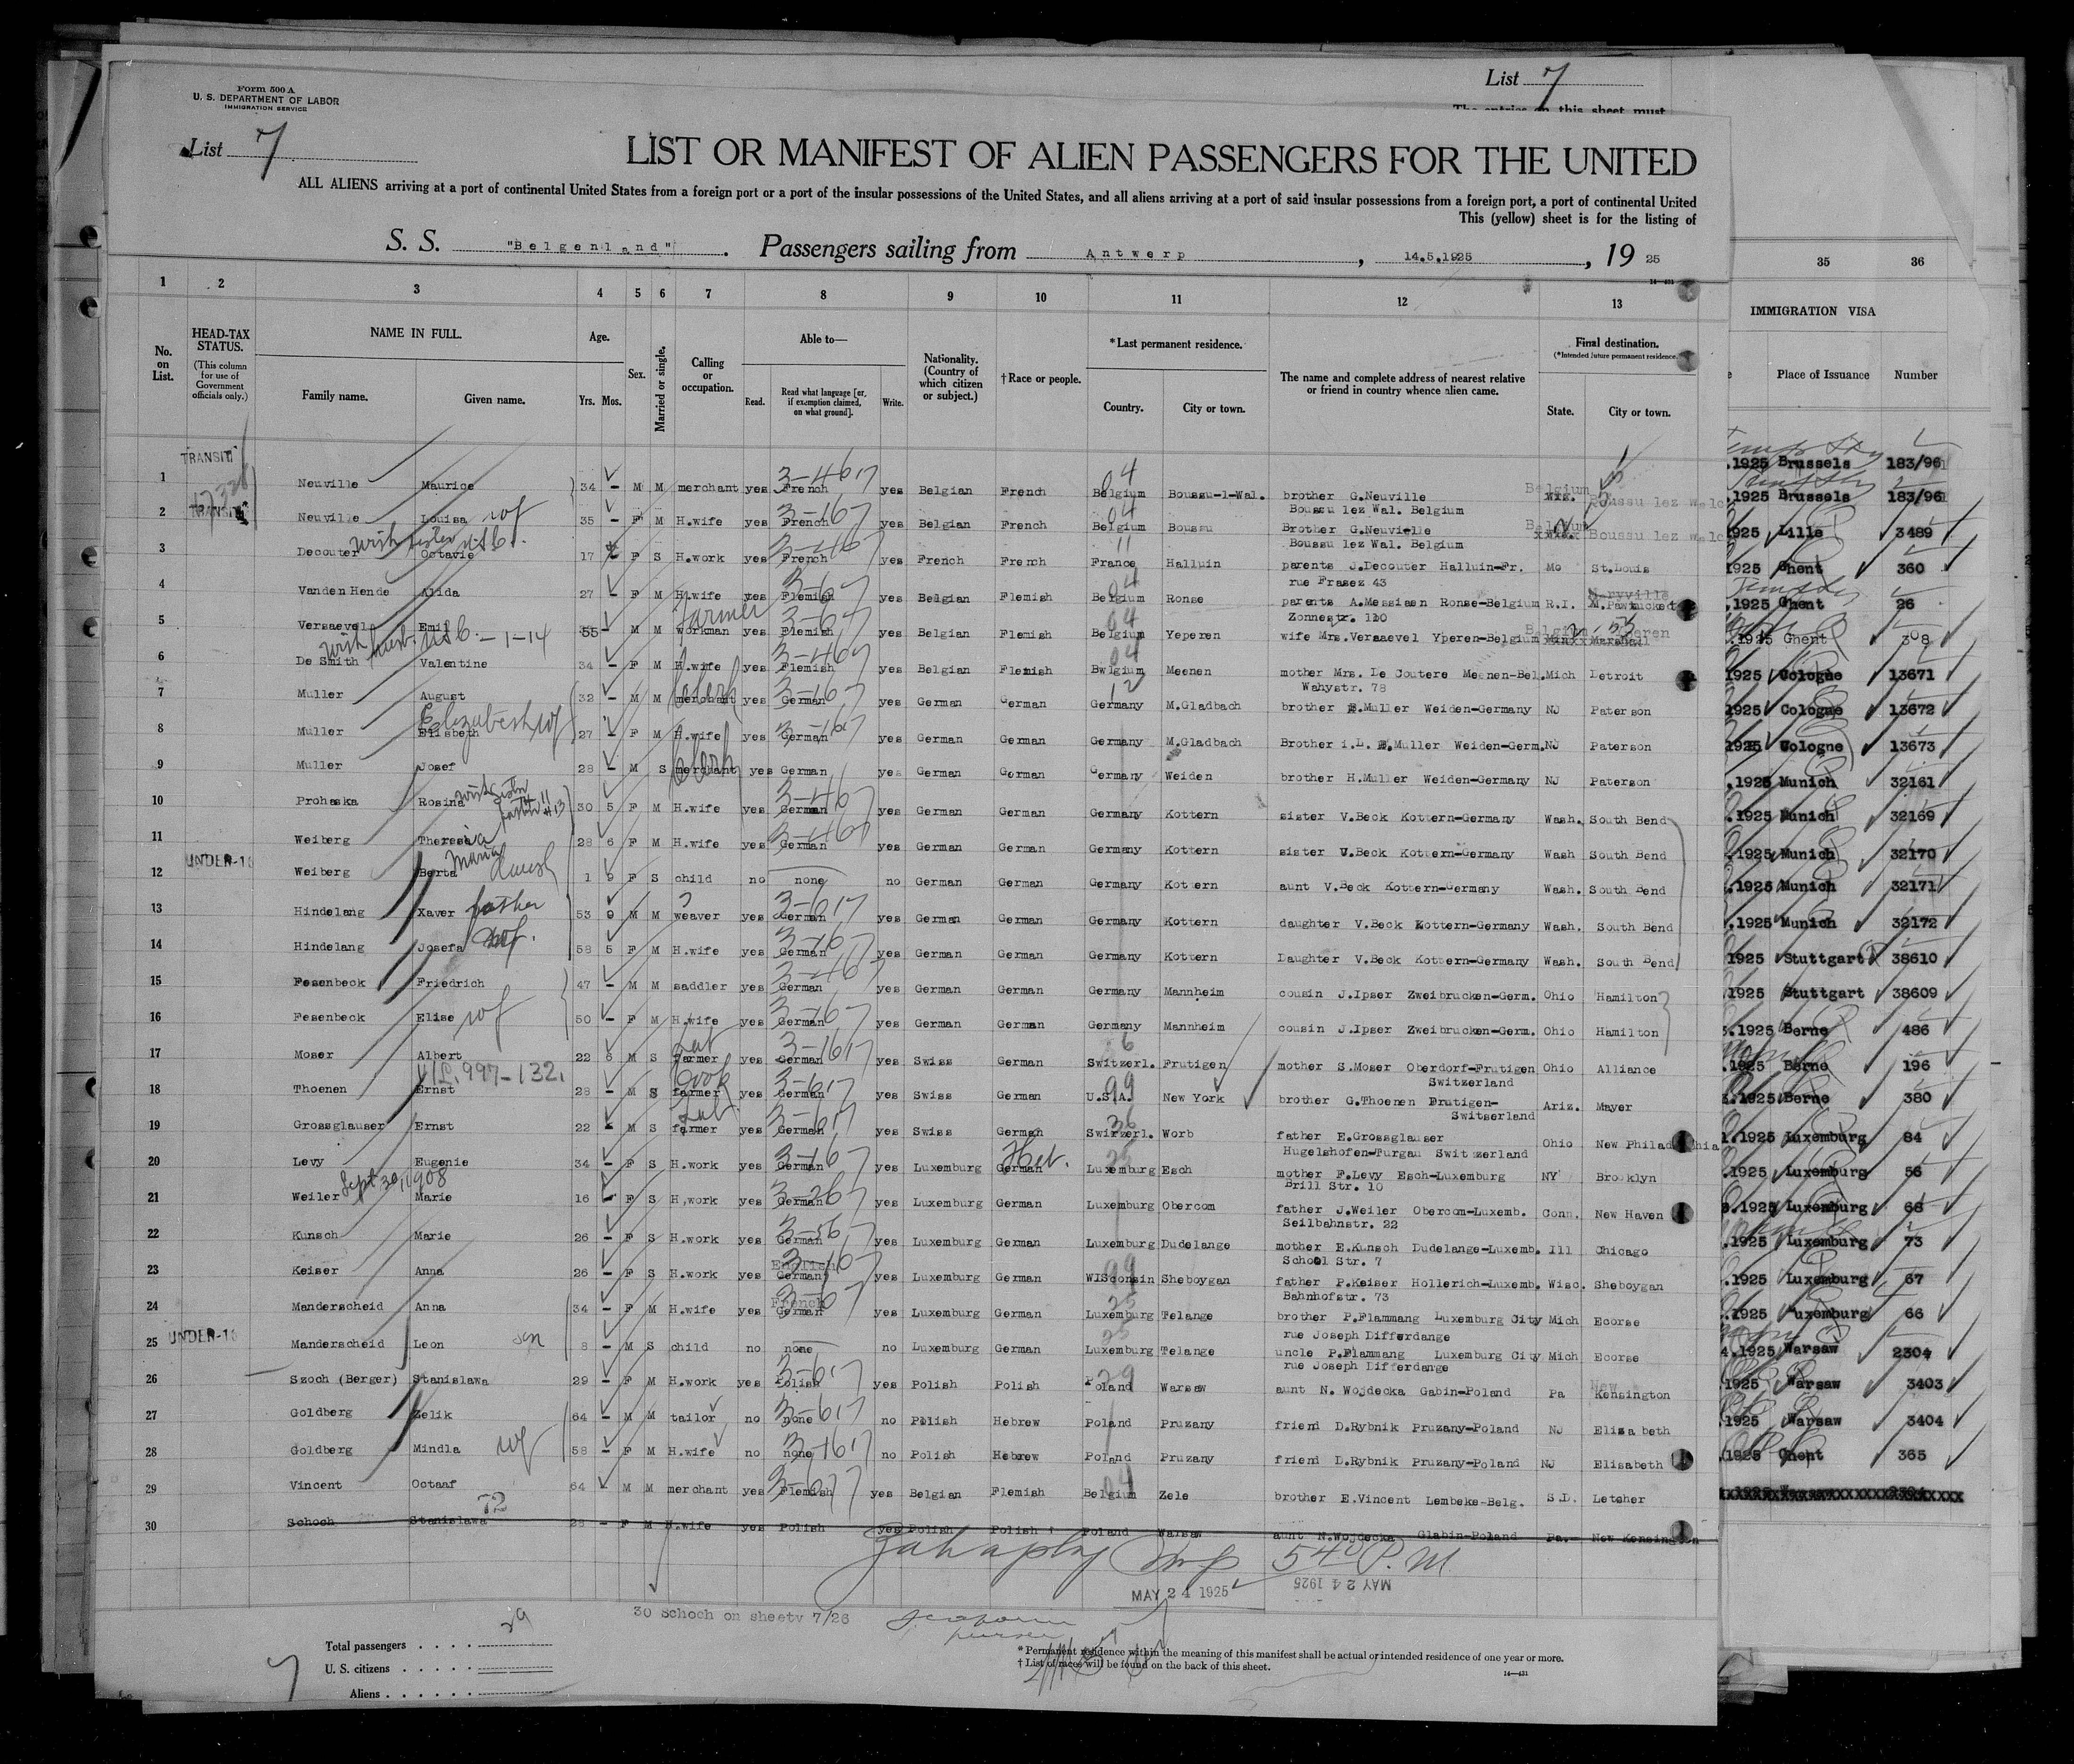 Form 500 A
U. S. DEPARTMENT OF LABOR
IMMIGRATION SERVICE
List 7
List 7
The entries on this sheet must
LIST OR MANIFEST OF ALIEN PASSENGERS FOR THE UNITED
ALL ALIENS arriving at a port of continental United States from a foreign port or a port of the insular possessions of the United States, and all aliens arriving at a port of said insular possessions from a foreign port, a port of continental United
This (yellow) sheet is for the listing of
S. S. "Belgenland". Passengers sailing from Antwerp, 14.5.1925, 19 25
14—431
1 2 3 4 5 6 7 8 9 10 11 12 13 35 36
No. on List.
HEAD-TAX STATUS.
(This column for use of Government officials only.)
NAME IN FULL.
Family name. Given name.
Age.
Yrs. Mos.
Sex.
Married or single.
Calling or occupation.
Able to—
Read. Read what language [or, if exemption claimed, on what ground]. Write.
Nationality. (Country of which citizen or subject.)
†Race or people.
*Last permanent residence.
Country. City or town.
The name and complete address of nearest relative or friend in country whence alien came.
Final destination.
(*Intended future permanent residence.)
State. City or town.
IMMIGRATION VISA
Place of Issuance Number
TRANSIT
1 Neuville Maurice 34 - M M merchant yes French yes Belgian French Belgium Boussu-l-Wal. brother G.Neuville Boussu lez Wal. Belgium Belgium Boussu lez Walc
TRANSIT
2 Neuville Louisa wf 35 - F M H.wife yes French yes Belgian French Belgium Boussu Brother G.Neuvielle Boussu lez Wal. Belgium Belgium Boussu lez Walc
3 Decouter Octavie 17 - F S H.work yes French yes French French France Halluin parents J.Decouter Halluin-Fr. rue Frasez 43 Mo St.Louis
4 Vanden Hende Alida 27 - F M H.wife yes Flemish yes Belgian Flemish Belgium Ronse parents A.Messiaen Ronse-Belgium Zonnestr. 120 R.I. Pawtucked
5 Versaevel Emil 55 - M M workman farmer yes Flemish yes Belgian Flemish Belgium Yeperen wife Mrs.Versaevel Yperen-Belgium Belgium Yperen
6 De Smith Valentine 34 - F M H.wife yes Flemish yes Belgian Flemish Bwlgium Meenen mother Mrs. De Coutere Meenen-Bel. Wahystr. 78 Mich Detroit
7 Muller August 32 - M M merchant clerk yes German yes German German Germany M.Gladbach brother E.Muller Weiden-Germany NJ Paterson
8 Muller Elisbeth Elizabeth wf 27 - F M H.wife yes German yes German German Germany M.Gladbach Brother i.L. E.Muller Weiden-Germ. NJ Paterson
9 Muller Josef 28 - M S merchant clerk yes German yes German German Germany Weiden brother H.Muller Weiden-Germany NJ Paterson
10 Prohaska Rosina 30 5 F M H.wife yes German yes German German Germany Kottern sister V.Beck Kottern-Germany Wash. South Bend
11 Weiberg Theresia 28 6 F M H.wife yes German yes German German Germany Kottern sister V.Beck Kottern-Germany Wash South Bend
UNDER-16
12 Weiberg Berta Maria 1 9 F S child no none no German German Germany Kottern aunt V.Beck Kottern-Germany Wash. South Bend
13 Hindelang Xaver father 53 9 M M weaver yes German yes German German Germany Kottern daughter V.Beck Kottern-Germany Wash. South Bend
14 Hindelang Josefa 58 5 F M H.wife yes German yes German German Germany Kottern Daughter V.Beck Kottern-Germany Wash. South Bend
15 Fesenbeck Friedrich 47 - M M saddler yes German yes German German Germany Mannheim cousin J.Ipser Zweibrucken-Germ. Ohio Hamilton
16 Fesenbeck Elise wf 50 - F M H.wife yes German yes German German Germany Mannheim cousin J.Ipser Zweibrucken-Germ. Ohio Hamilton
17 Moser Albert 22 6 M S farmer yes German yes Swiss German Switzerl. Frutigen mother S.Moser Oberdorf-Frutigen Switzerland Ohio Alliance
18 Thoenen Ernst 28 - M S farmer Cook yes German yes Swiss German U.S.A. New York brother G.Thoenen Frutigen-Switserland Ariz. Mayer
19 Grossglauser Ernst 22 - M S farmer yes German yes Swiss German Swirzerl. Worb father E.Grossglauser Hugelshofen-Turgau Switzerland Ohio New Philadelphia
20 Levy Eugenie 34 - F S H.work yes German yes Luxemburg German Heb. Luxemburg Esch mother F.Levy Esch-Luxemburg Brill Str. 10 NY Brooklyn
Sept 30, 1908
21 Weiler Marie 16 - F S H.work yes German yes Luxemburg German Luxemburg Obercom father J.Weiler Obercom-Luxemb. Seilbahnstr. 22 Conn. New Haven
22 Kunsch Marie 26 - F S H.work yes German yes Luxemburg German Luxemburg Dudelange mother E.Kunsch Dudelange-Luxemb. School Str. 7 Ill Chicago
23 Keiser Anna 26 - F S H.work yes English German yes Luxemburg German WISconsin Sheboygan father P.Keiser Hollerich-Luxemb. Bahnhofstr. 73 Wisc. Sheboygan
24 Manderscheid Anna 34 - F M H.wife yes French German yes Luxemburg German Luxemburg Telange brother P.Flammang Luxemburg City rue Joseph Differdange Mich Ecorse
UNDER-16
25 Manderscheid Leon son 8 - M S child no none no Luxemburg German Luxemburg Telange uncle P.Flammang Luxemburg City rue Joseph Differdange Mich Ecorse
26 Szoch (Berger) Stanislawa 29 - F M H.work yes Polish yes Polish Polish Poland Warsaw aunt N. Wojdecka Gabin-Poland Pa New Kensington
27 Goldberg Zelik 64 - M M tailor no none no Polish Hebrew Poland Pruzany friend D.Rybnik Pruzany-Poland NJ Elisa beth
28 Goldberg Mindla wf 58 - F M H.wife no none no Polish Hebrew Poland Pruzany friend D.Rybnik Pruzany-Poland NJ Elisabeth
29 Vincent Octaaf 64 M M merchant yes Flemish yes Belgian Flemish Belgium Zele brother E.Vincent Lembeke-Belg. S.D. Letcher
72
30 Schoch Stanislawa 28 - F M H.wife yes Polish yes Polish Polish Poland Warsaw aunt N.Wojdecka Glabin-Poland Pa. New Kensington
.1925 Brussels 183/96
.1925 Brussels 183/96
1925 Lille 3489
1925 Ghent 360
.1925 Ghent 26
.1925 Ghent 308
1925 Cologne 13671
1925 Cologne 13672
1925 Cologne 13673
.1925 Munich 32161
.1925 Munich 32169
.1925 Munich 32170
.1925 Munich 32171
.1925 Munich 32172
1925 Stuttgart 38610
1925 Stuttgart 38609
.1925 Berne 486
.1925 Berne 196
.1925 Berne 380
.1925 Luxemburg 84
.1925 Luxemburg 56
.1925 Luxemburg 68
.1925 Luxemburg 73
.1925 Luxemburg 67
.1925 Luxemburg 66
4.1925 Warsaw 2304
1925 Warsaw 3403
1925 Warsaw 3404
1925 Ghent 365
5 40 P. M
MAY 24 1925
MAY 24 1925
30 Schoch on sheetv 7/26
Total passengers . . . . 29
U. S. citizens . . . . .
Aliens . . . . . .
7
* Permanent residence within the meaning of this manifest shall be actual or intended residence of one year or more.
† List of races will be found on the back of this sheet.
14—431